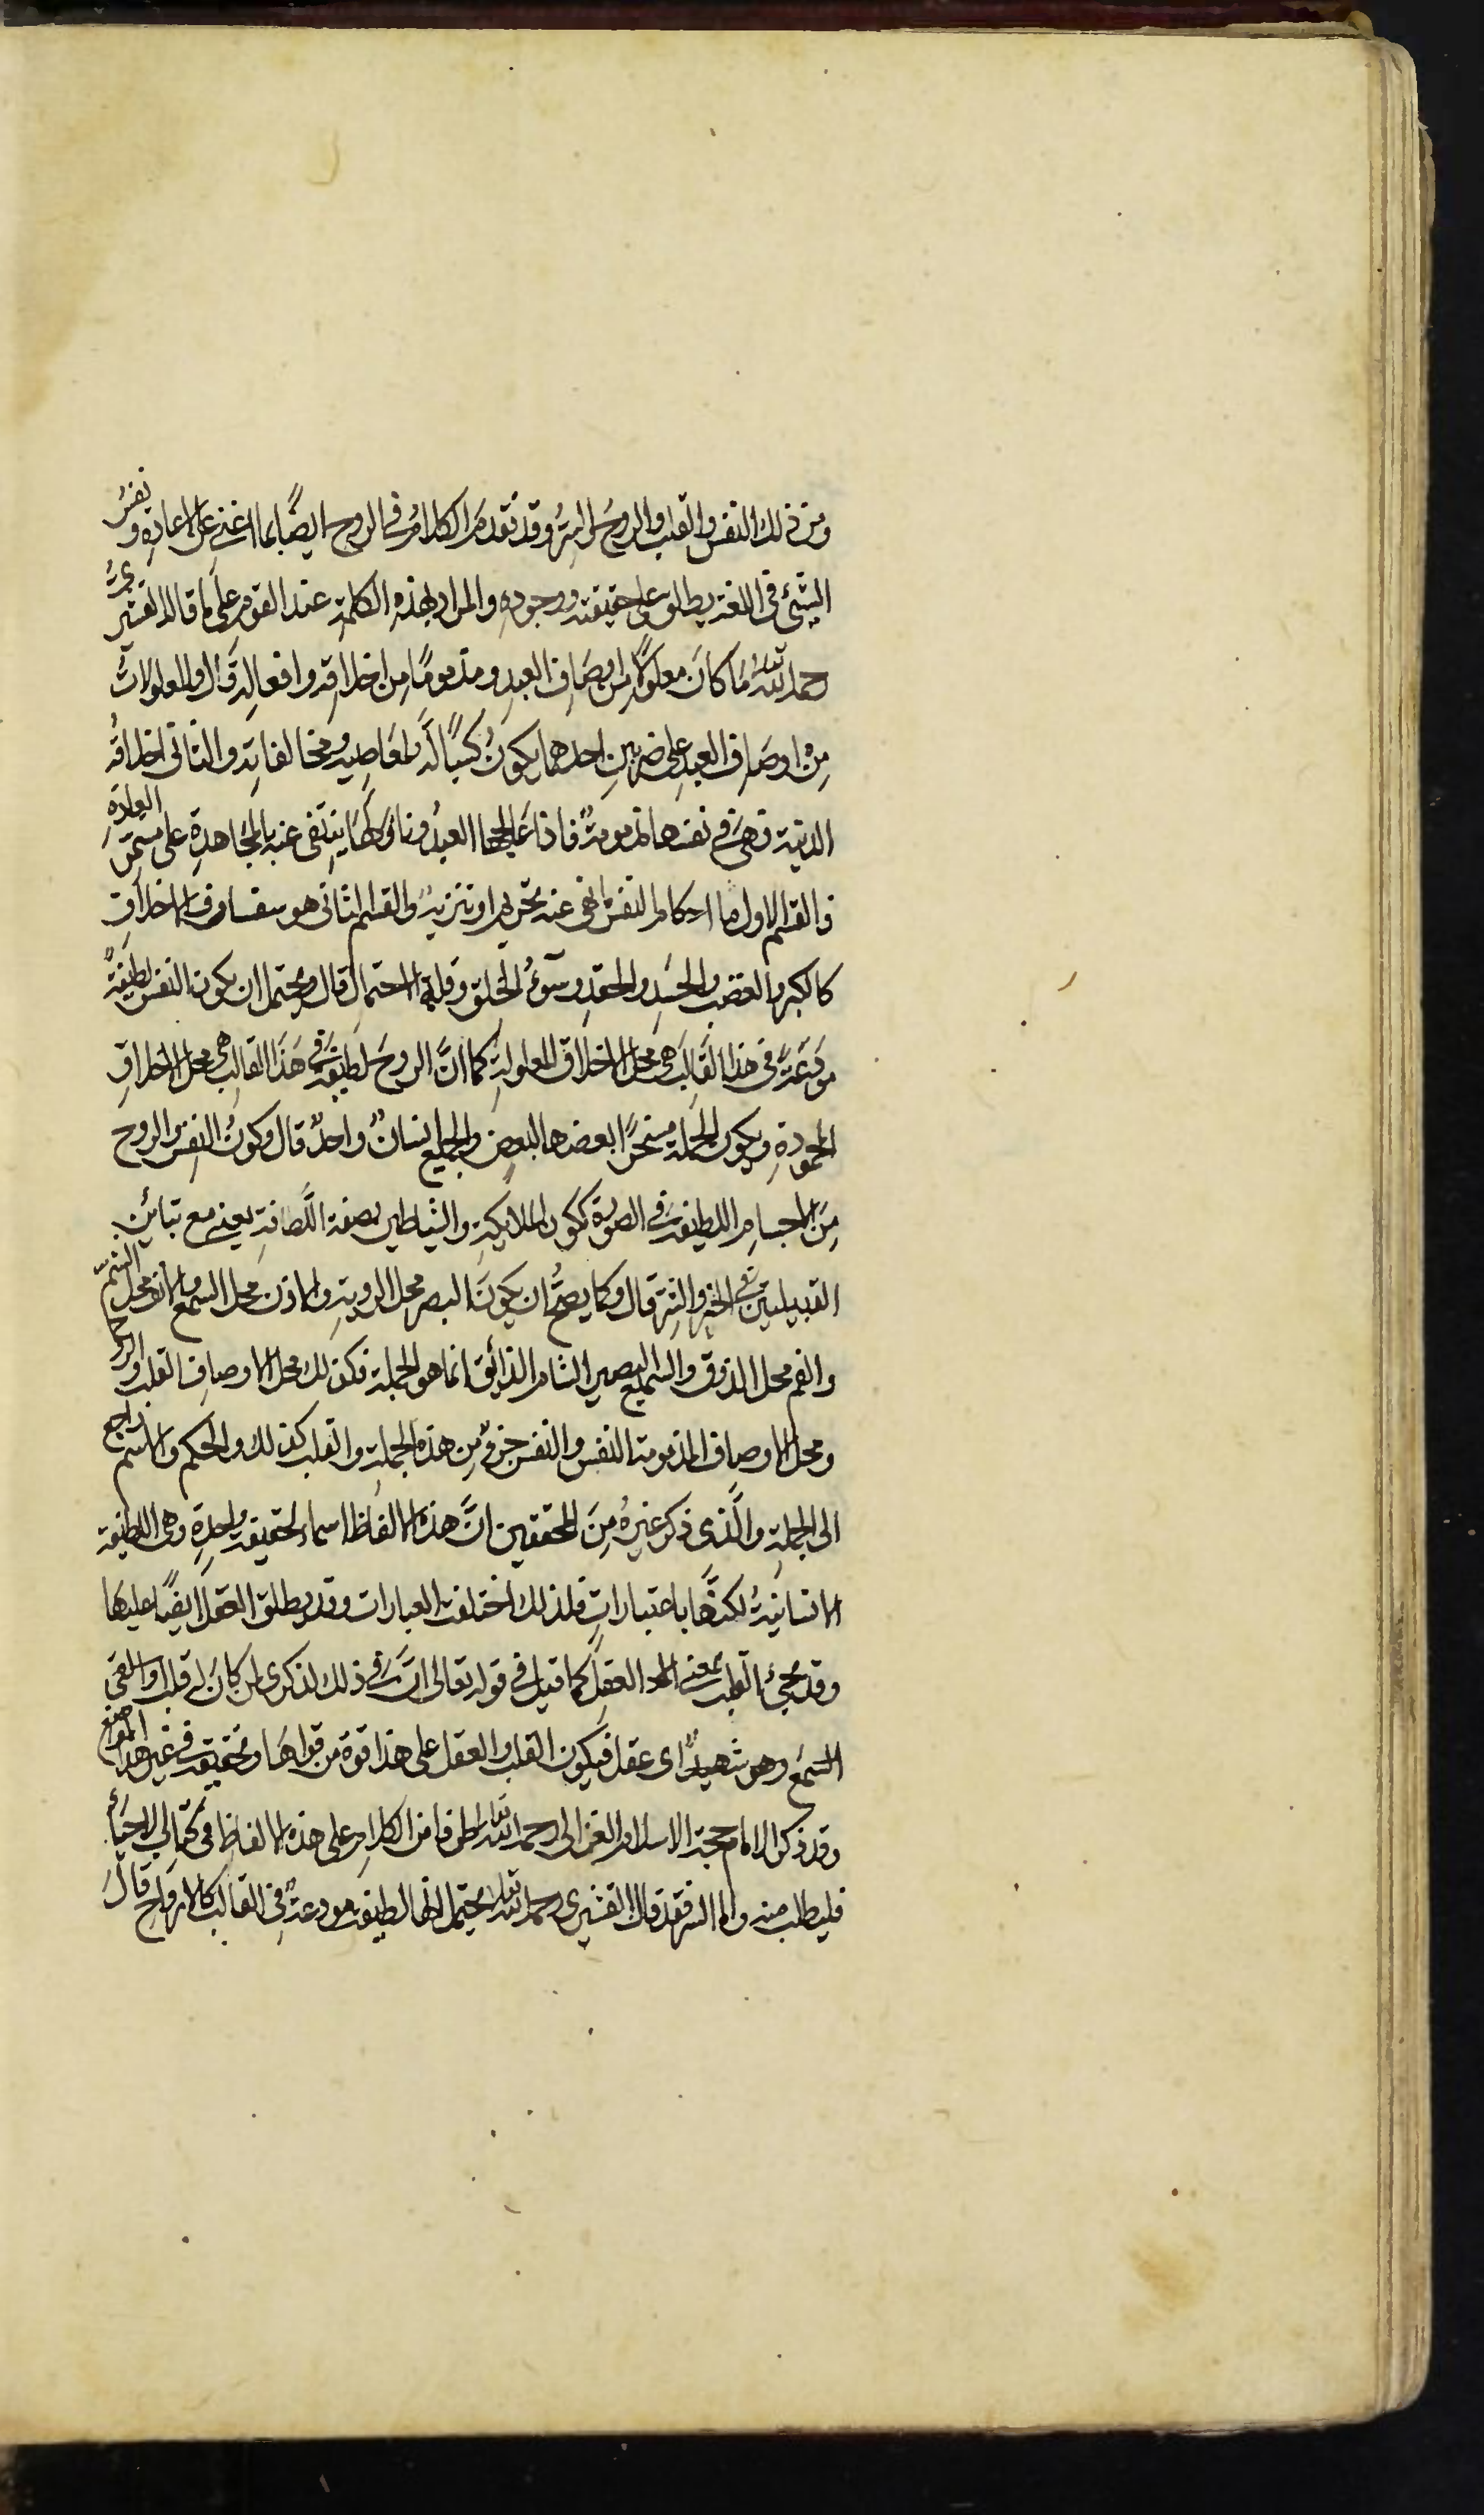 ومن ذلك النفس والقلب والروح والسر وقد تقدم الكلام في الروح ايضًا بما اغني عن الاعادة ونفسُ
الشئ في اللغة يطلق على حقيقته ووجوده والمراد بهذه الكلمة عند القوم على ما قال القشيرىُّ
رحمه الله مَا كانَ معلولًا من اوصَاف العبد ومذمومًا من اخلاقه وافعاله قال والمعلولات
مِنْ اوصَاف العبد على ضربين احدهما يكونُ كسبًا لَه كمعَاصيه ومخالفاته والثانى اخلاقُه
الدنية فهى في نفسها مذمومةٌ فاذا عَالجها العبدُ ونازلهَا ينتفى عنه بالمجَاهدة على مستمر العادةِ
فالقسم الاول ما احكام النفس نهى عنه تحريم او تنزيهٌ والقسم الثانى هو سفساف الاخلاق
كالكبر والغضب والحسَد والحقد وسوءُ الخلق وقلة الاحتمال قال ويحتمل ان يكون النفس لطيفةً
مودَعةً في هذا القالب هى محل الاخلاق المعلولةِ كما انَّ الروحَ لطيفةٌ في هَذَا القالب هى محل الاخلاقِ
المحمودةِ ويكون الجملة مسخرًا بعضها لبعض والجميع انسانٌ واحدٌ قال وكونُ النفس والروح
مِنَ الاجسام اللطيفة في الصورة ككون الملايكة والشياطين بصفة اللّطافة يعني مع تبائن
القبيلتين في الخير والشر قال وكما يصحُّ ان يكونَ البصر محل الروية والاذن محل السمع والانف محل الشمّ
والفم محل الذوق والسميع البصير الشام الذائق انما هو الجملة فكذلك محل الاوصاف القلب والروح
ومحل الاوصاف المذمومة النفس والنفس جزءٌ مِن هذه الجملة والقلب كذلك والحكم والاسم راجع
الى الجملة والَّذى ذكر غيرهُ مِنَ المحققين انَّ هذه الالفاظ اسماء لحقيقة واحدةٍ وهى اللطيفة
الانسانيةُ لكنهَا باعتباراتٍ فلذلك اختلفت العبارات وقد يطلق العقل ايضًا عليهَا
وقد يجئُ القلب بمعنى العقل كما قيل في قوله تعالى انَّ في ذلك لذكرى لمن كانَ له قلب او القى
السَّمع وهو شهيدٌ اى عقل فيكون القلب والعقل على هذا قوة من قواهَا وتحقيقه في غير هذا الموضع
وقد ذكر الامام حجة الاسلام الغزالى رحمه الله تعالى طرفا من الكلام على هذه الالفاظ في كتاب الاحيَاءِ
فليطلب منه واما السر فقد قال القشيرى رحمه الله تعالى يحتمل انها لطيفة مودعةٌ في القالب كالارواح قالَ